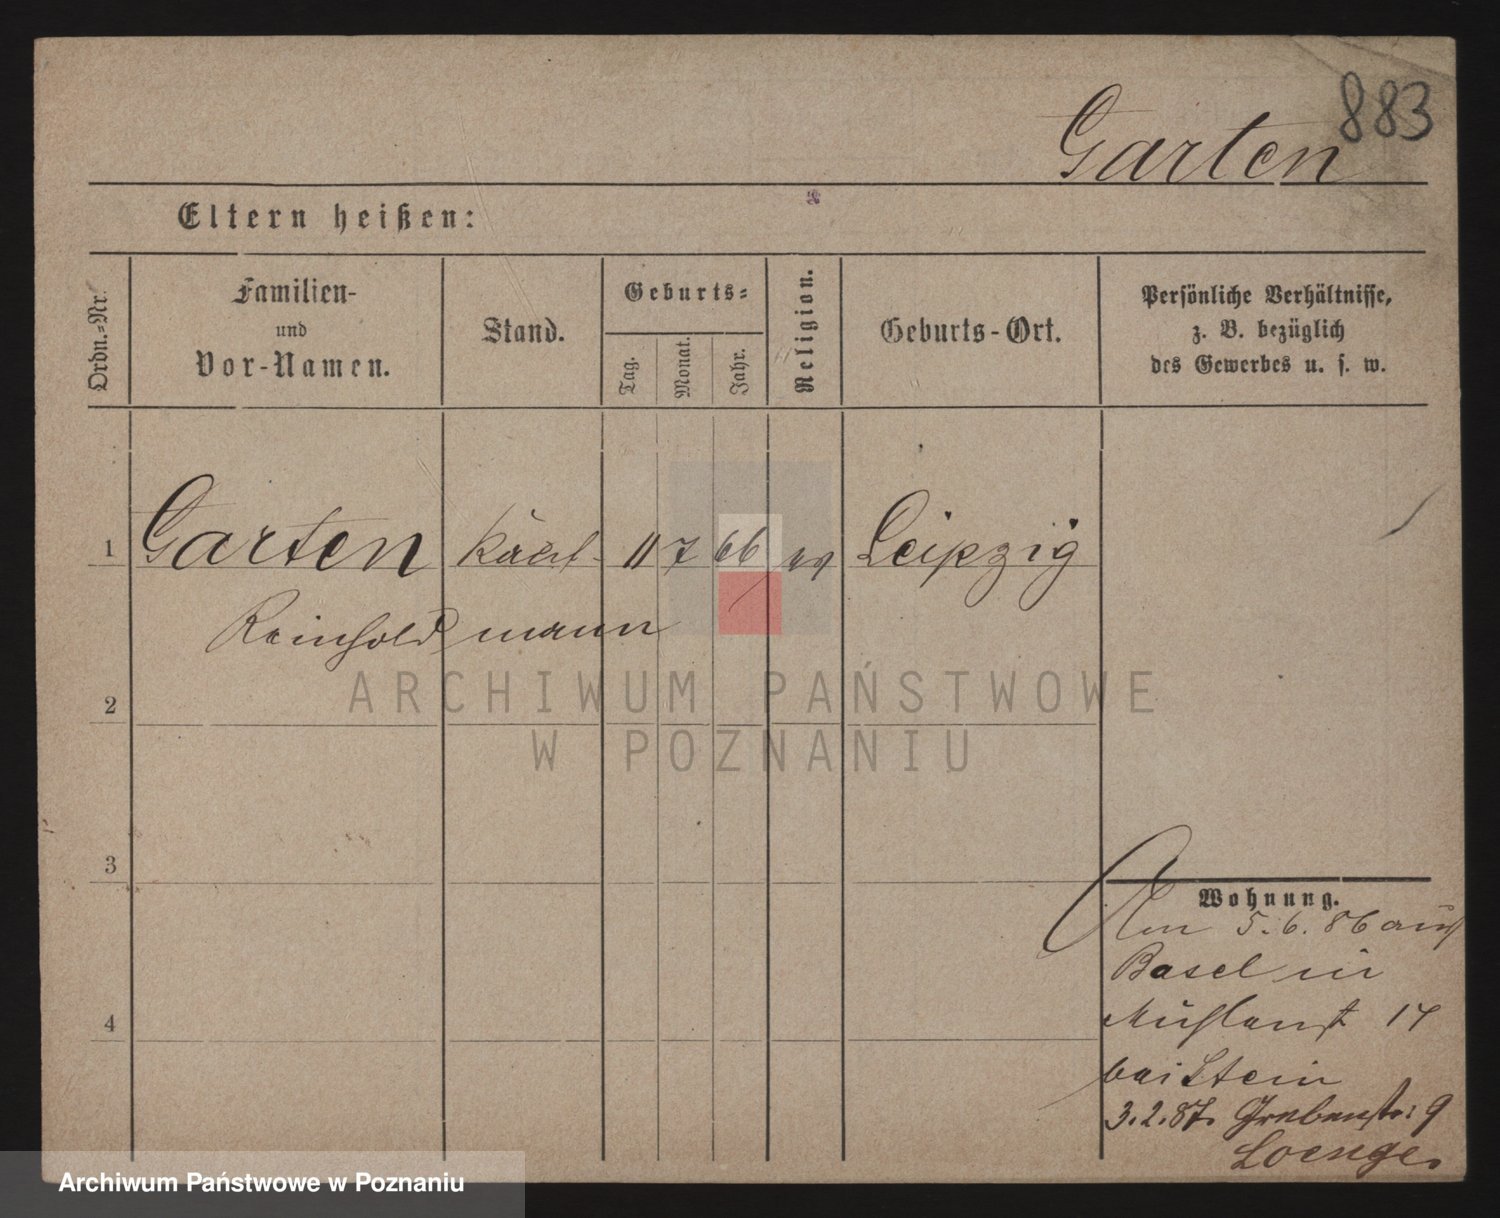 883
Garten
Eltern heißen:
Ordn.-Nr.
Familien-
und
Vor-Namen.
Stand.
Geburts-
Tag.
Monat.
Jahr.
Religion.
Geburts-Ort.
Persönliche Verhältnisse,
z. B. bezüglich
des Gewerbes u. s. w.
1 Garten 11 7 66 ev Leipzig
Reinhold mann
2
3
4
Wohnung.
Am 5.6.86 aus
Basel in
Mühlenst 17
bei Stein
3.2.87. Grabenstr: 9
ARCHIWUM PAŃSTWOWE
W POZNANIU
Archiwum Państwowe w Poznaniu